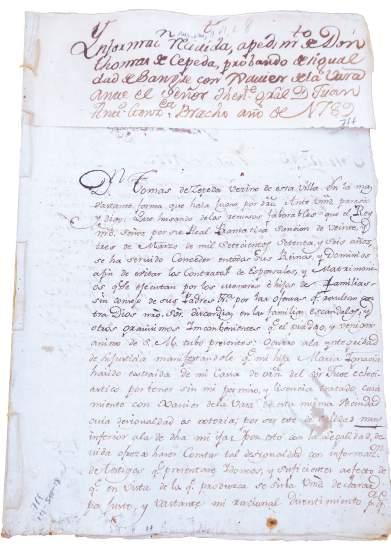 Ynformaz.n Recivida, a pedim.to de Don
thomas de Cepeda, probando desigual
dad de Sangre con Xavier de la Vara
Ante el Señor then.te gral D. Juan
Anto. Gonz. Bracho año de 1782
Dn. Tomas de Zepeda Vezino de esta Villa en la mas
vastante forma que haia lugar por dro. Ante Vmd. paresco
y digo: Que husando de las remisas faborables que el Rey
nro. Señor por su Real Pracmatica Sancion de veinte, y
tres de Marzo de mil Setecientos Setenta, y seis años,
se ha servido Conceder en todos sus Reinos, y Dominios
afin de evitar los Contratos de Esponsales, y Matrimo-
nios que executan por los hijos de familias
sin consejo de sus Padres por las ofensas q. resultan con
tra Dios nro. Sor. discordias en las familias, escandalos, y
otros gravisimos Inconbenientes q. el cuidado, y
animo de S. M. tubo presentes; Ocurro a la integridad
de su justicia manifestandole q. mi hija Maria Ignacia
haido extraida de mi Casa de orn. del Sr. Juez Ecleci-
astico por tener sin mi permiso, y licencia tratado casa-
miento con Xavier de la Vara de esta misma Vecindad
cuia desigualdad es notoria; por ser este de calidad mui
inferior a la de dha mi hija por esto con la legalidad de-
vida ofresco hacer Constar tal desigualdad con informaz.n
de testigos q. presentare Idoneos, y suficientes a efecto de
q. en vista de lo q. produzca se sirba Vmd. declarar
por justo, y vastante mi racional disentimiento